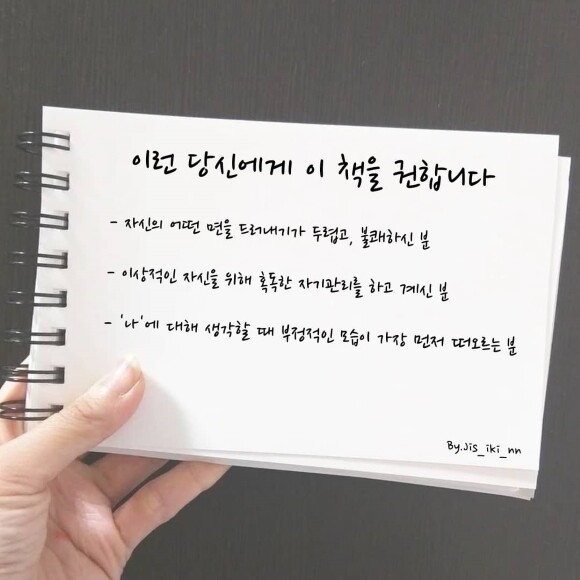 이런 당신에게 이 책을 권합니다
- 자신의 어떤 면을 드러내기가 두렵고, 불쾌하신 분
- 이상적인 자신을 위해 혹독한 자기관리를 하고 계신 분
- '나'에 대해 생각할 때 부정적인 모습이 가장 먼저 떠오르는 분
By.Jis_iki_nn